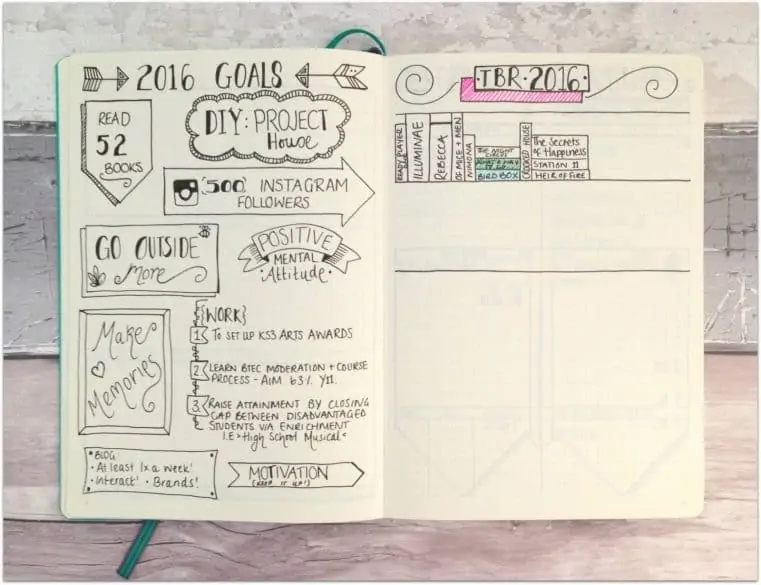 2016 GOALS
READ
52
BOOKS
DIY: PROJECT
House
500 INSTAGRAM
FOLLOWERS
GO OUTSIDE
More
POSITIVE
MENTAL
Attitude
Make
Memories
{WORK}
1 TO SET UP KS3 ARTS AWARDS
2 LEARN BTEC MODERATION + COURSE
PROCESS - AIM 63% Y11.
3 RAISE ATTAINMENT BY CLOSING
GAP BETWEEN DISADVANTAGED
STUDENTS VIA ENRICHMENT
I.E > High School Musical <
BLOG
• At least 1x a week!
• Interact! • Brands!
MOTIVATION
(KEEP IT UP!)
TBR • 2016
READY PLAYER
ILLUMINAE
REBECCA
OF MICE + MEN
NIMONA
THE NIGHT
CIRCUS
BIRD BOX
CROOKED HOUSE
The Secrets
of Happiness
STATION 11
HEIR OF FIRE